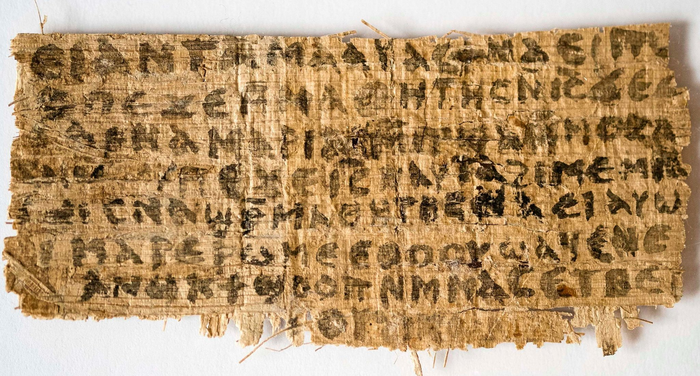 ⲁⲉⲓ ⲁⲛ ⲧⲁⲙⲁⲁⲩ ⲁⲥϯ ⲛⲁⲉⲓ ⲡⲱ
ⲡⲉϫⲉ ⲙⲙⲁⲑⲏⲧⲏⲥ ⲛⲓⲥ ϫⲉ ⲥ
ⲁⲣⲛⲁ ⲙⲁⲣⲓⲁⲙ ⲙⲡϣⲁ ⲙⲙⲟⲥ ⲁ
ⲡⲉϫⲉ ⲓⲥ ⲛⲁⲩ ⲧⲁϩⲓⲙⲉ ⲙⲛ
ⲥⲛⲁϣⲣⲙⲁⲑⲏⲧⲏⲥ ⲛⲁⲉⲓ ⲁⲩⲱ
ⲓ ⲙⲁⲣⲉⲣⲱⲙⲉ ⲉⲑⲟⲟⲩ ϣⲁϥⲉ ⲛⲉ
ⲁⲛⲟⲕ ϯϣⲟⲟⲡ ⲛⲙⲙⲁⲥ ⲉⲧⲃⲉ